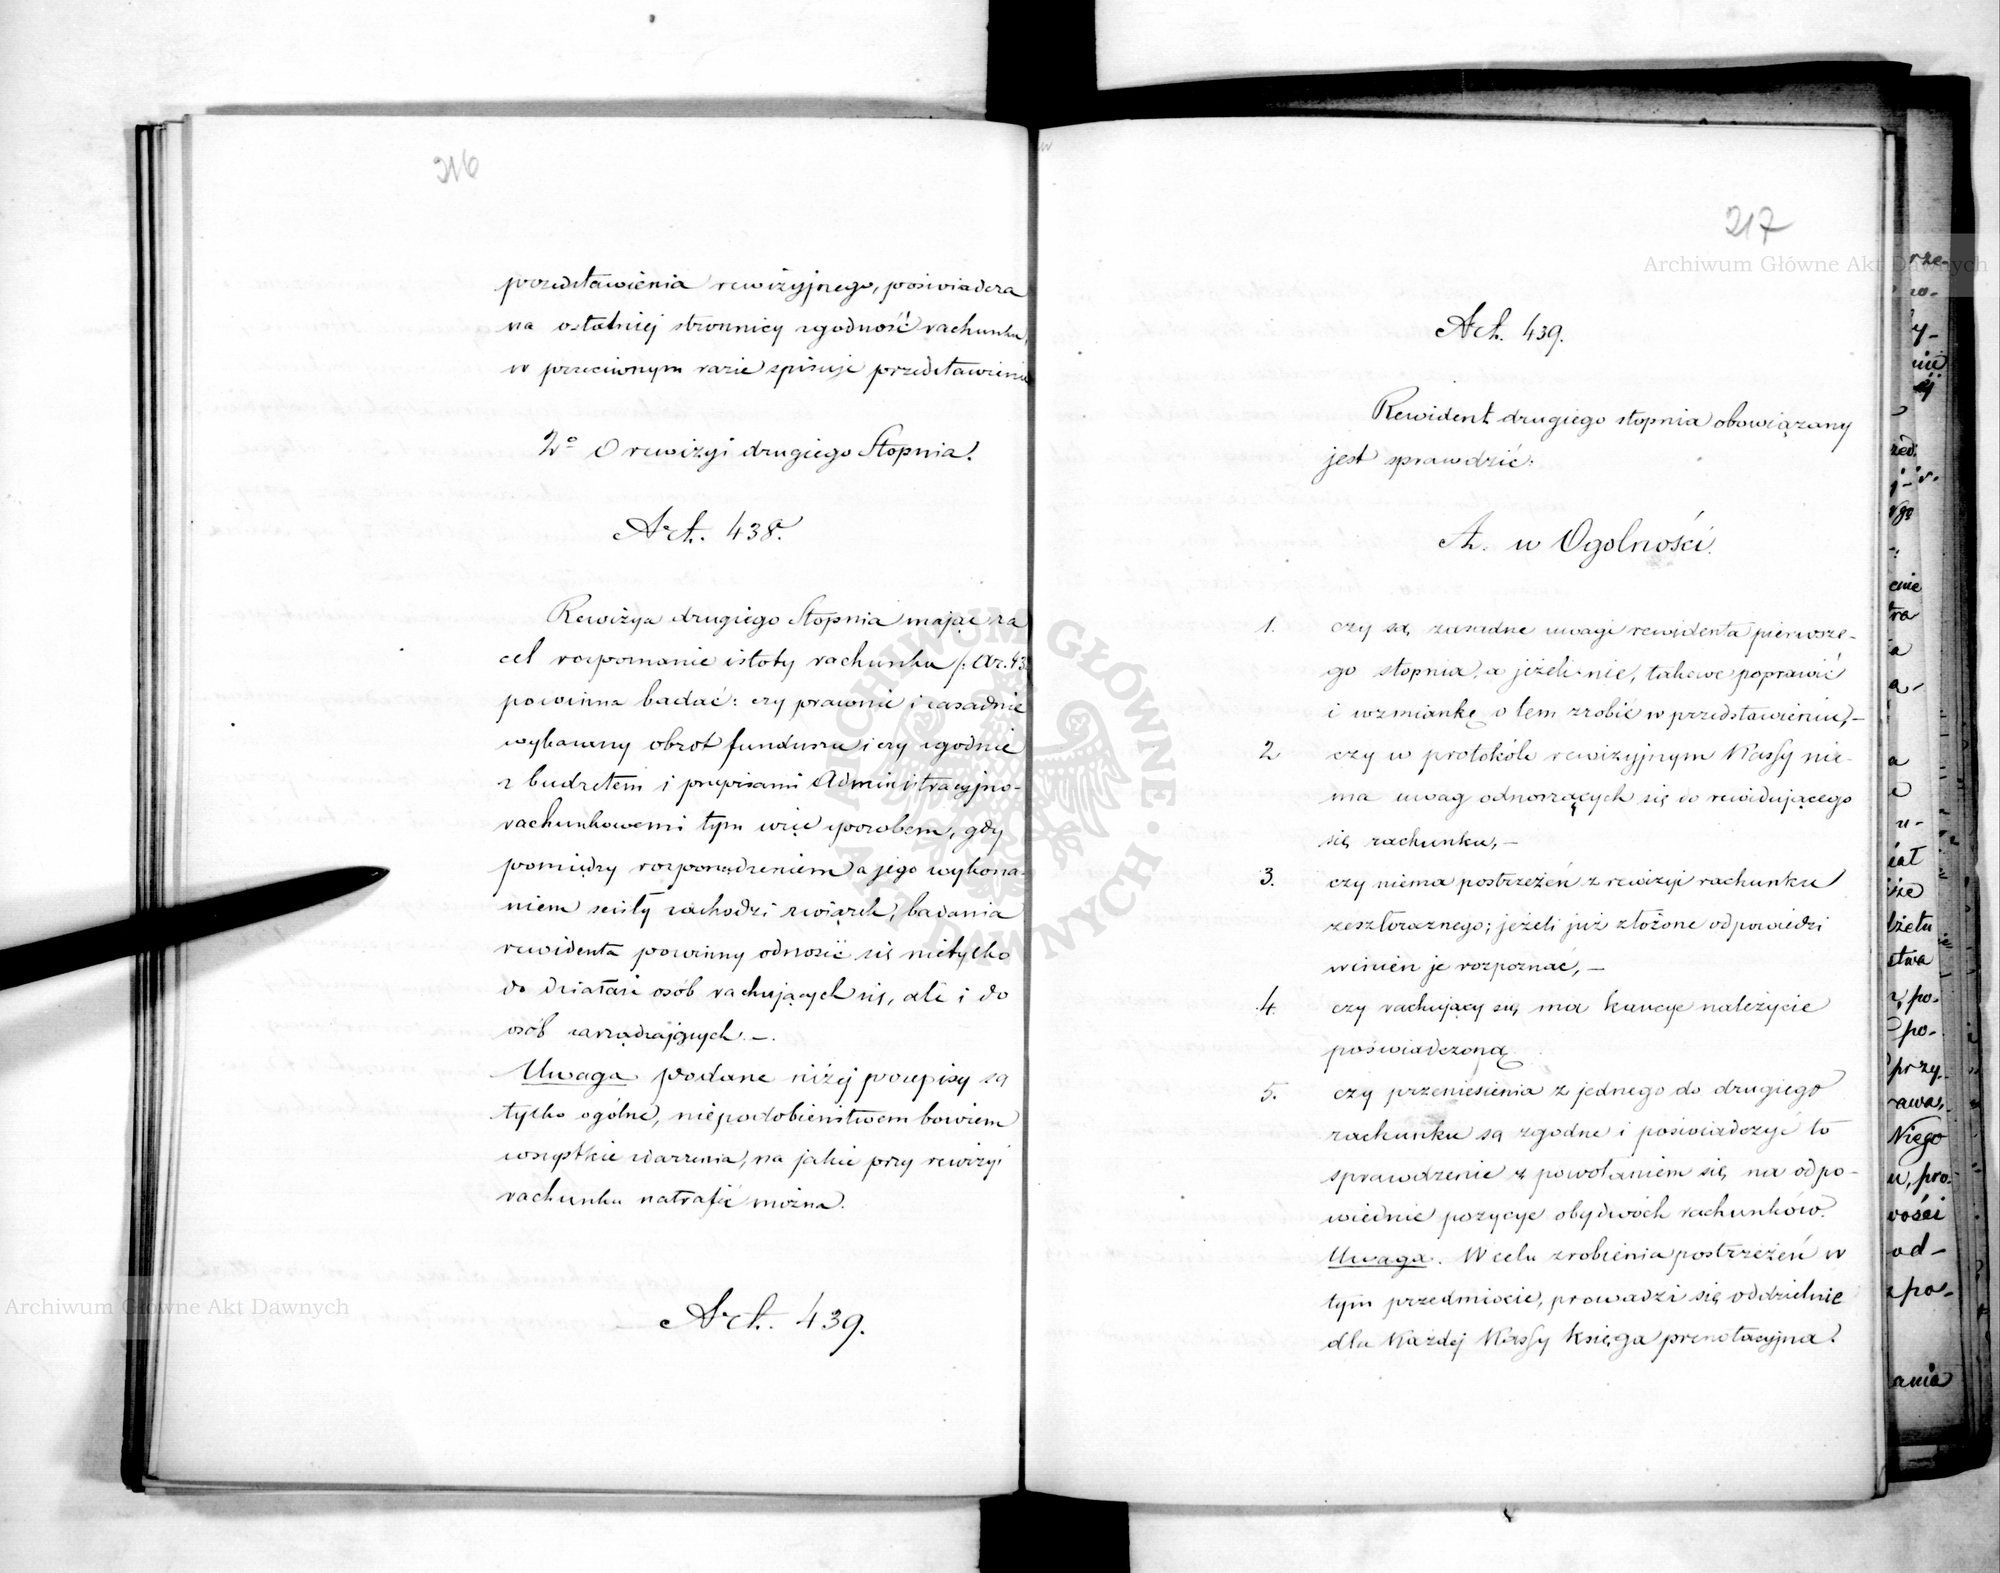 216
przedstawienia rewizyjnego, poświadcza
na ostatniej stronnicy zgodność rachunku,
w przeciwnym razie spisuje przedstawienie
2o O rewizyi drugiego Stopnia.
Art. 438.
Rewizya drugiego Stopnia mając za
cel rozpoznanie istoty rachunku /: Ar. 43
powinna badać: czy prawnie i zasadnie
wykazany obrot funduszu i czy zgodnie
z budżetem i przepisami Administracyjno-
rachunkowemi tym więc sposobem, gdy
pomiędzy rozporządzeniem a jego wykona-
niem ścisły zachodzi związek, badania
rewidenta powinny odnosić się nietylko
do działań osób rachujących się, ale i do
osób zarządzających. –
Uwaga podane niżej przepisy są
tylko ogólne, niepodobieństwem bowiem
wszystkie zdarzenia, na jakie przy rewizyi
rachunku natrafić można.
Art. 439.
217
Art. 439.
Rewident drugiego stopnia obowiązany
jest sprawdzić:
A. w Ogolności.
1. czy są zasadne uwagi rewidenta pierwsze-
go stopnia, a jeżeli nie, takowe poprawić
i wzmiankę o tem zrobić w przedstawieniu, –
2 czy w protokóle rewizyjnym Kassy nie-
ma uwag odnoszących się do rewidującego
się rachunku, –
3. czy niema postrzeżeń z rewizyi rachunku
zeszłorocznego; jeżeli już złożone odpowiedzi
winien je rozpoznać, –
4. czy rachujący się ma kaucye należycie
poświadczoną
5. czy przeniesienia z jednego do drugiego
rachunku są zgodne i poświadczyć to
sprawdzenie z powołaniem się na odpo-
wiednie pozycye obydwóch rachunków.
Uwaga. W celu zrobienia postrzeżeń w
tym przedmiocie, prowadzi się oddzielnie
dla Każdej Kassy księga prenotacyjna.
Archiwum Główne Akt Dawnych
Archiwum Główne Akt Dawnych
ARCHIWUM GŁÓWNE AKT DAWNYCH